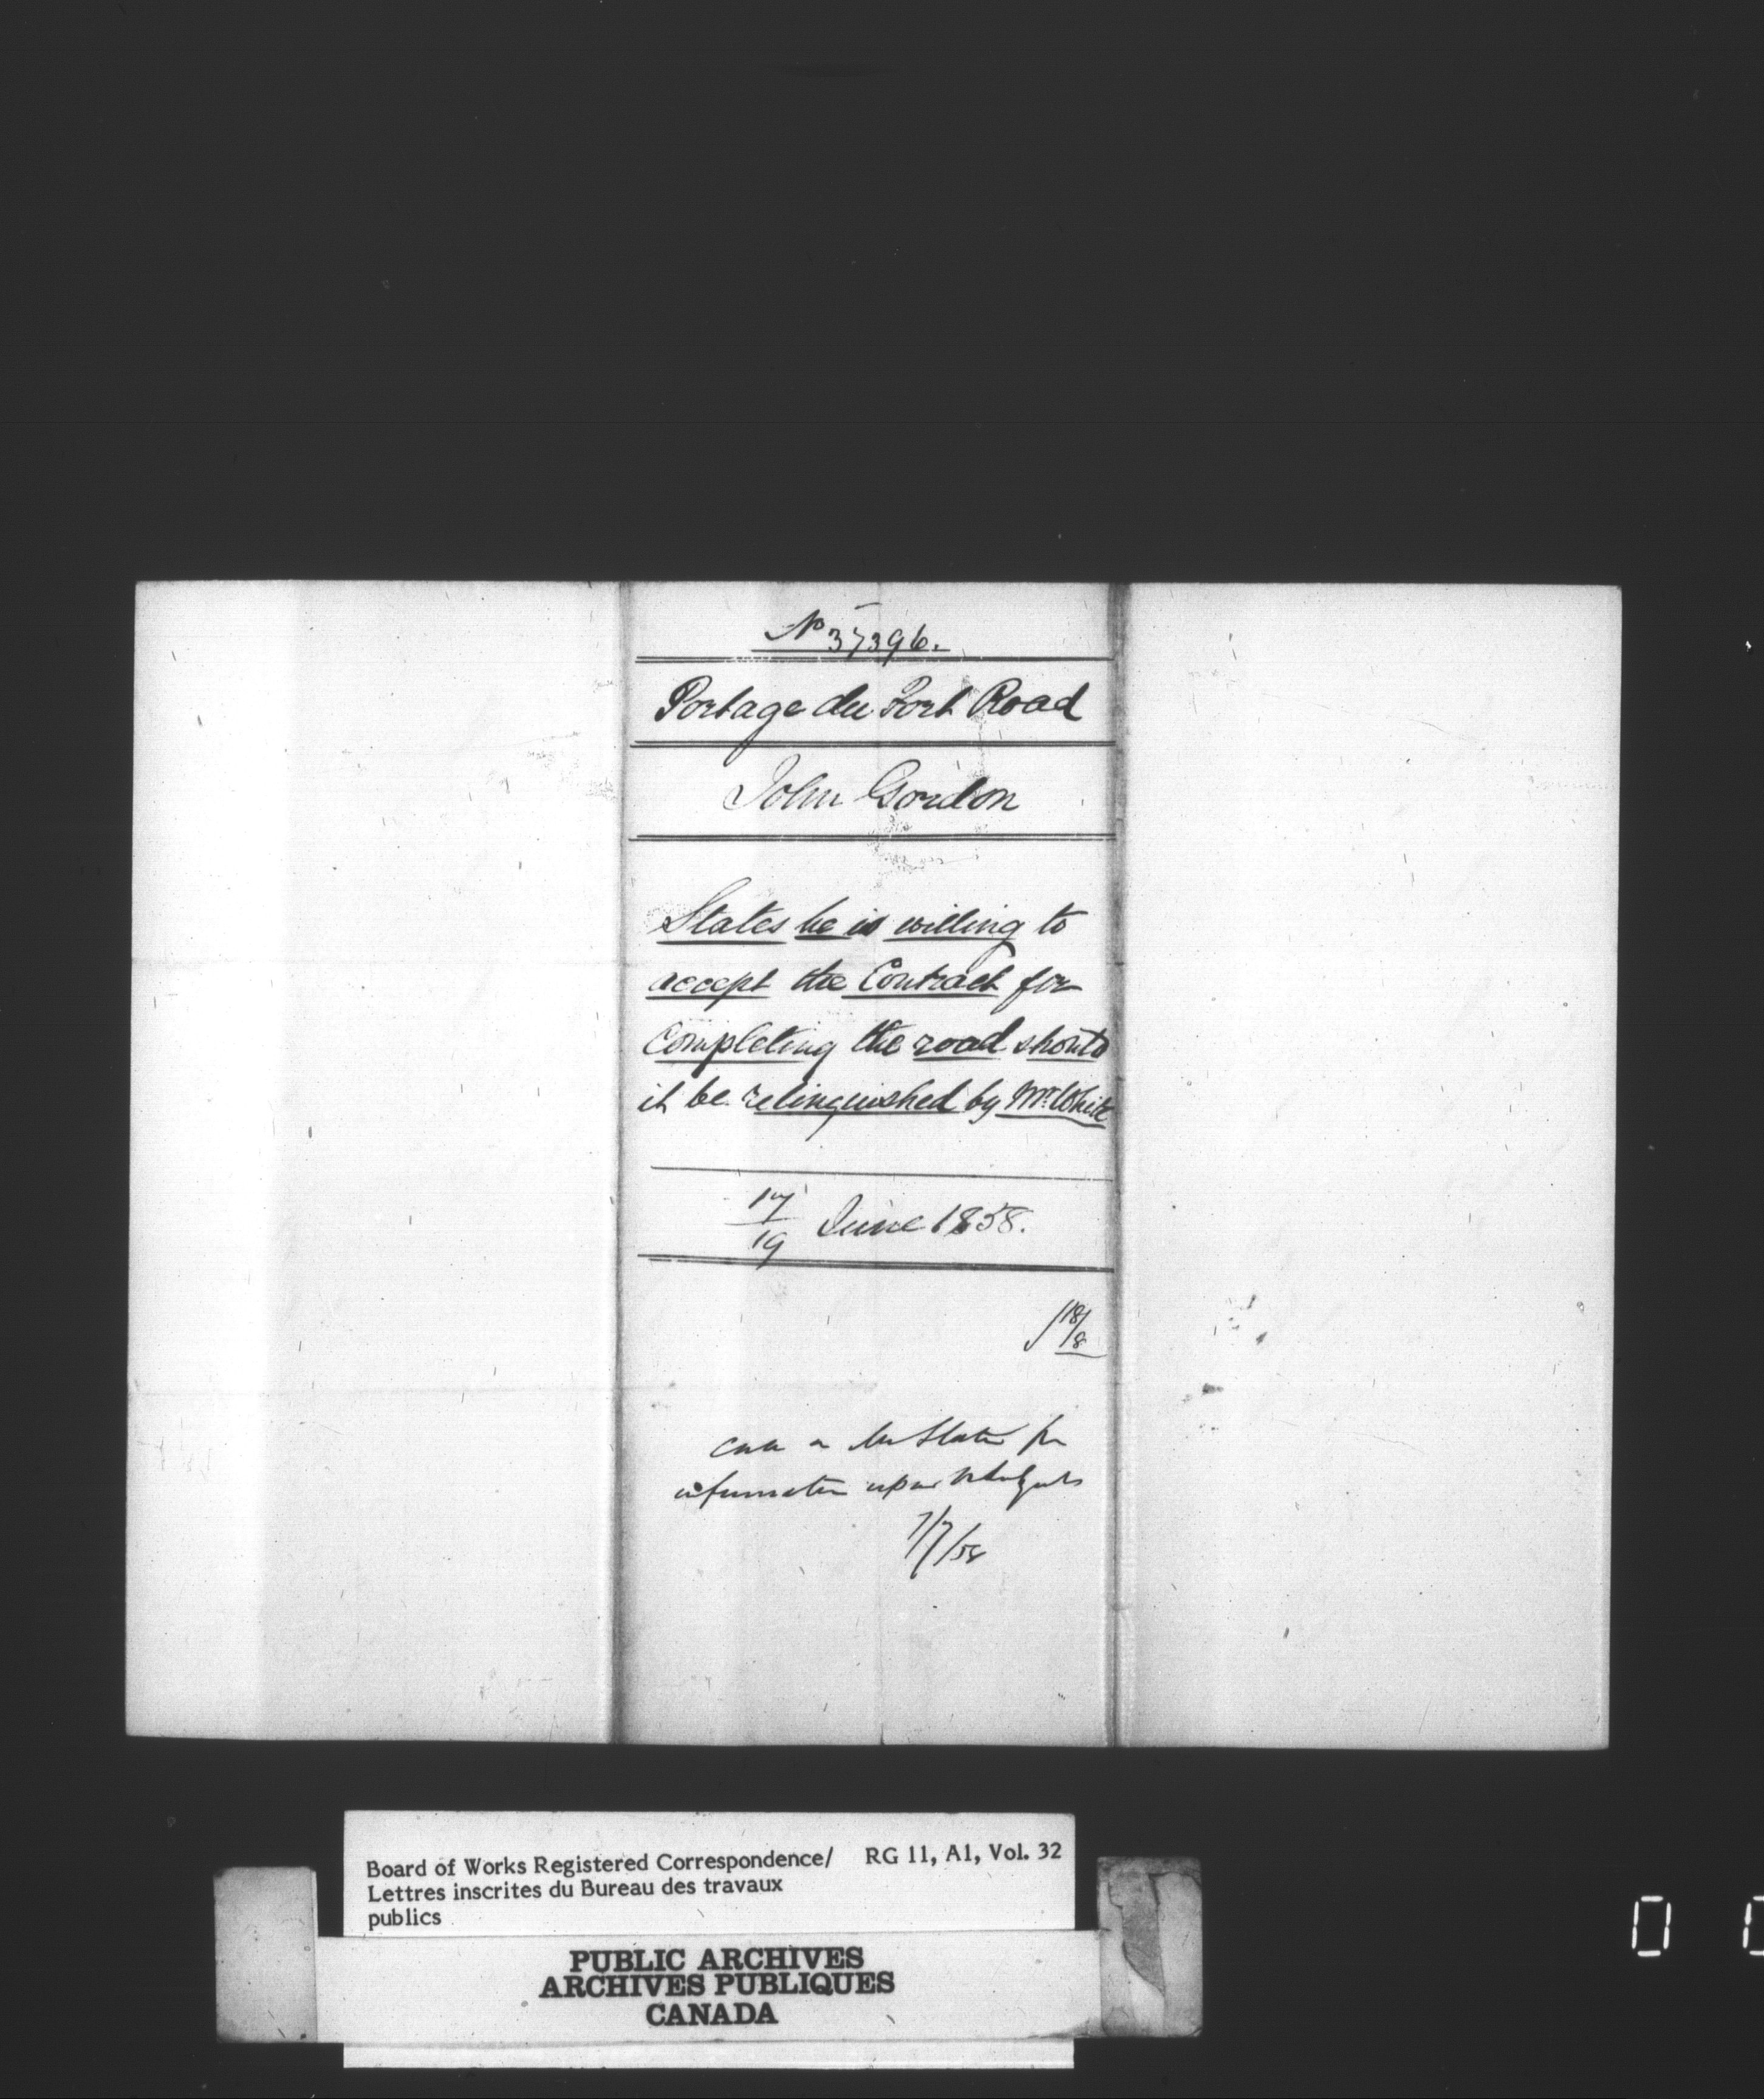 No 37396.
Portage du Fort Road
John Gordon
States he is willing to
accept the Contract for
Completing the road should
it be relinquished by Mr. White
17/19 June 1858.
18/8
for
information upon
7/7/58
Board of Works Registered Correspondence/ RG 11, A1, Vol. 32
Lettres inscrites du Bureau des travaux
publics
PUBLIC ARCHIVES
ARCHIVES PUBLIQUES
CANADA
0 0